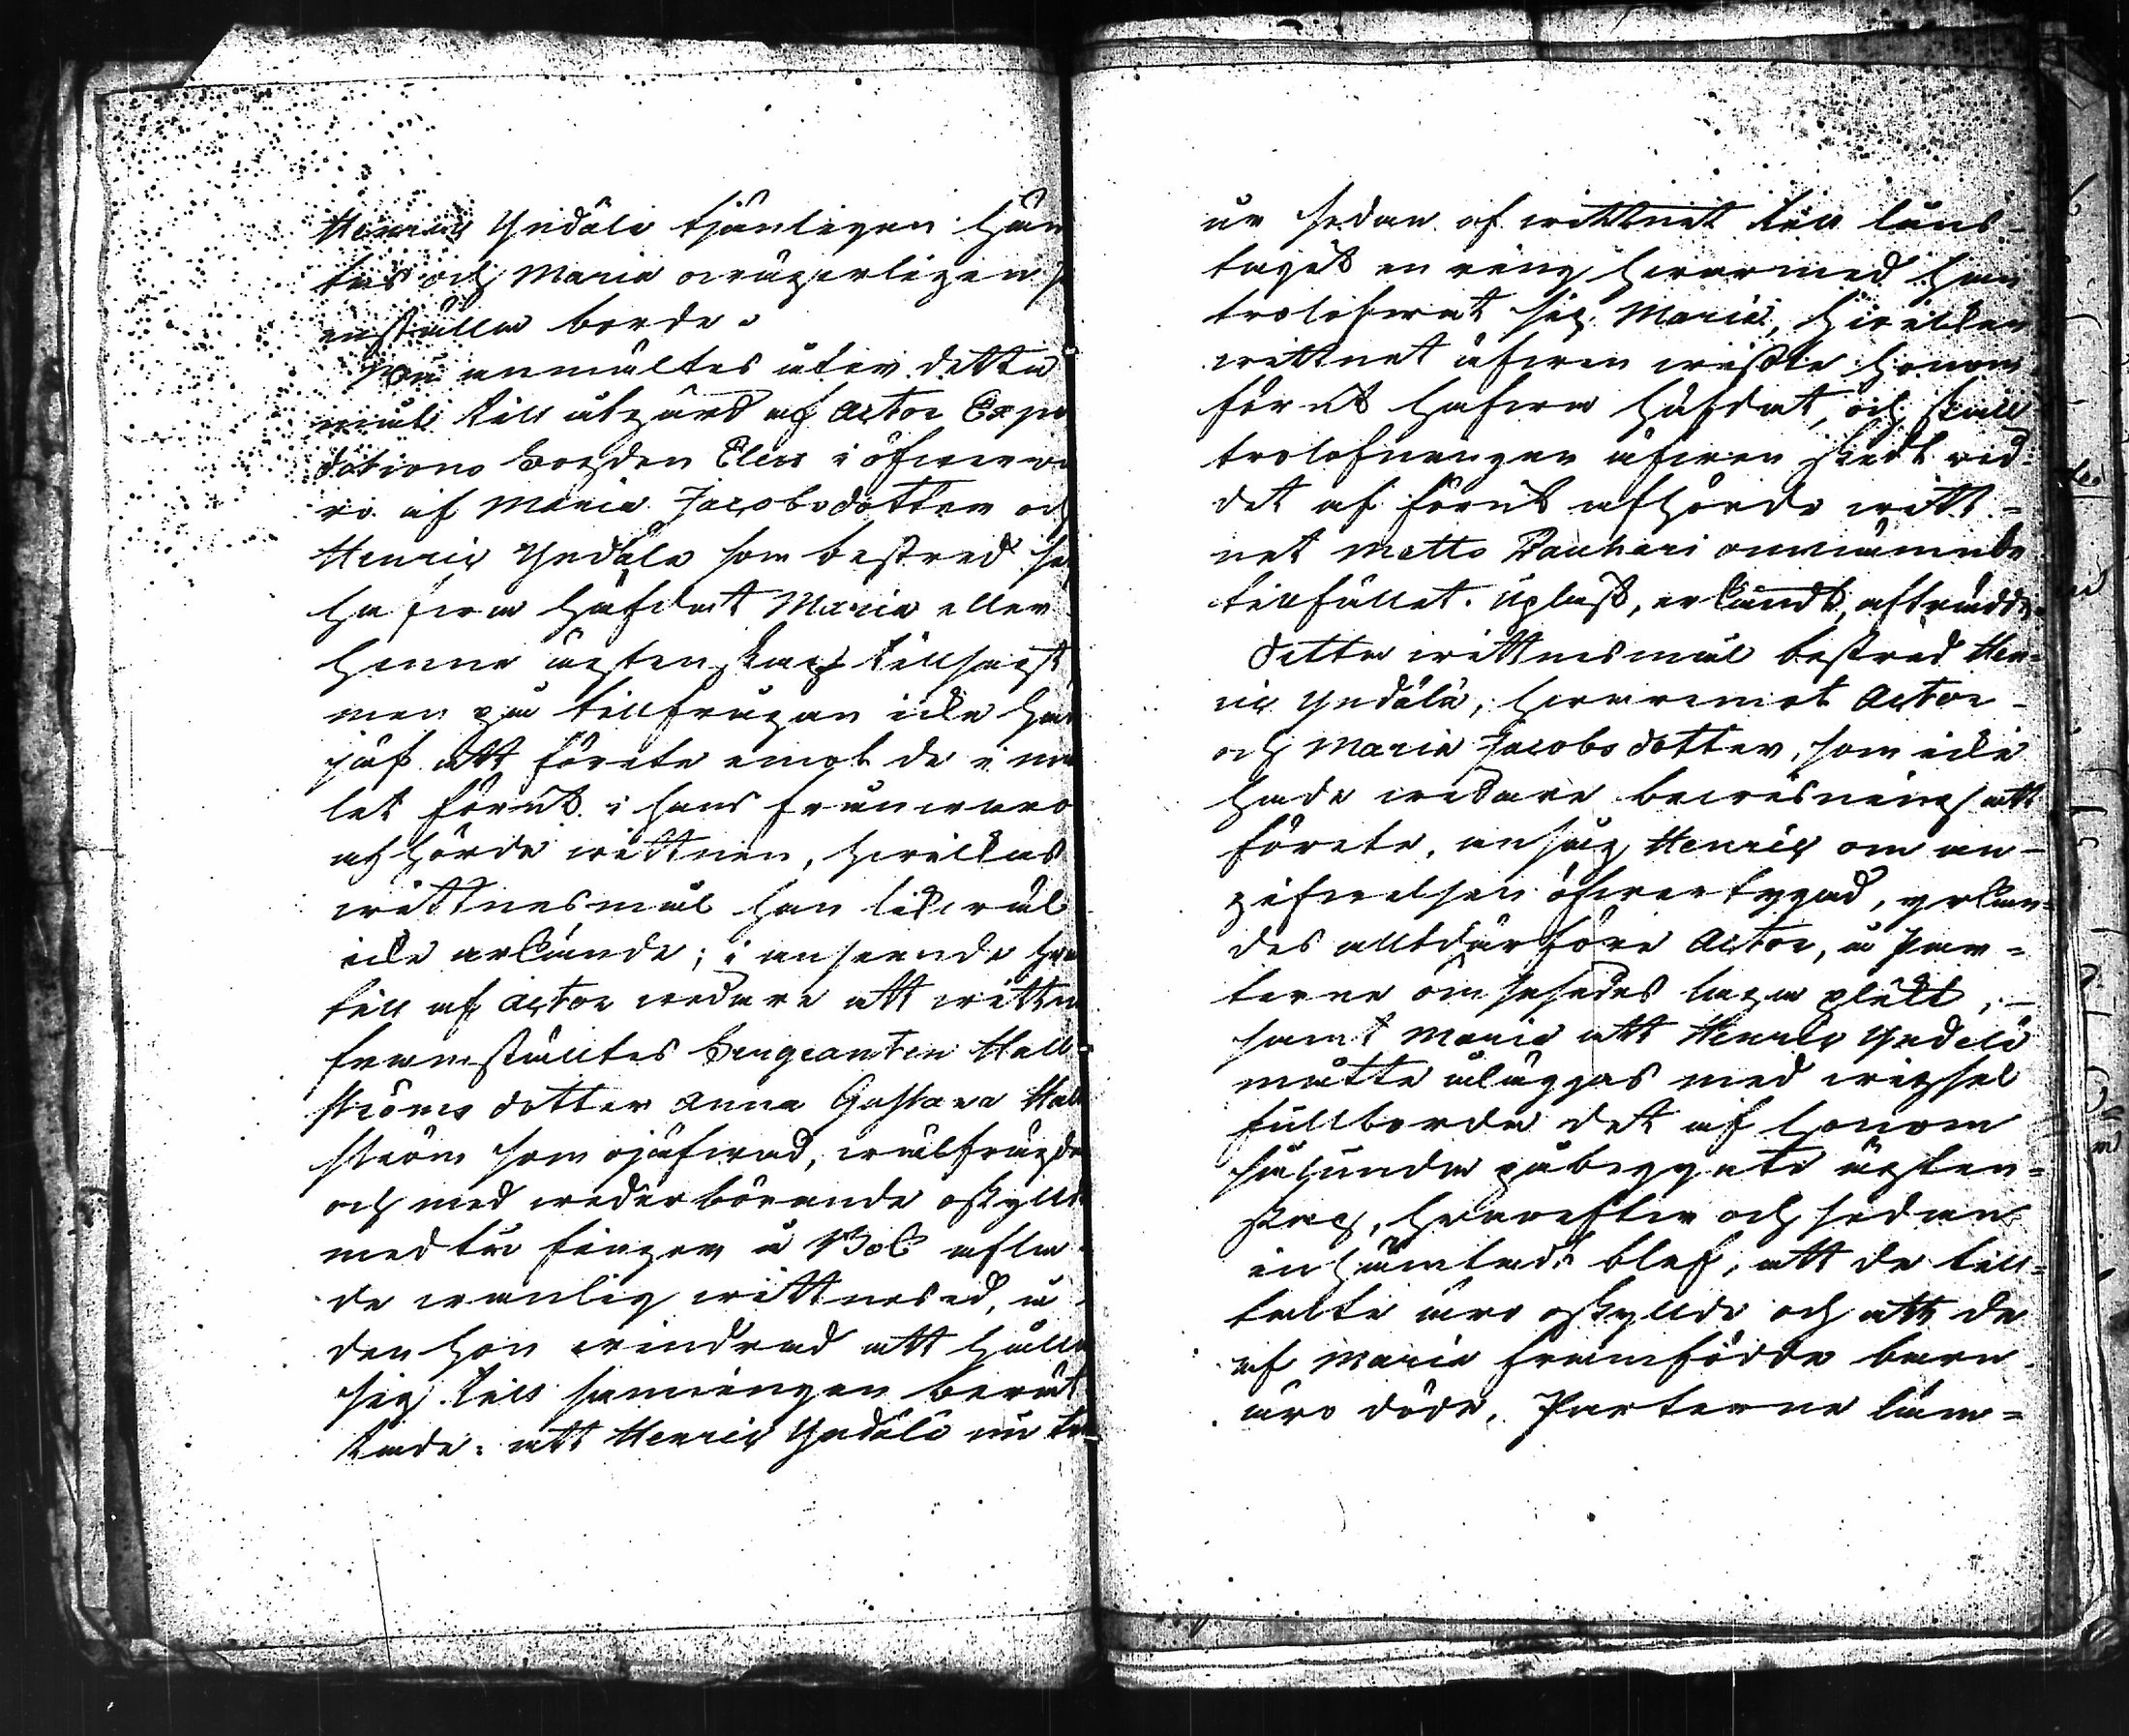 Henric Yndälä tjänligen häm
tas och Maria owägerligen
inställa borde.
Nu anmältes åter detta
mål till åtgärd af Actor Expe
ditions Fogden Elers i öfwerwa
ro af Maria Jacobsdotter och
Henric Yndälä som bestred sig
hafwa häfdat Maria eller
henne ägtenskap tillsagt
men på tillfrågan icke had
jäf att förete emot de i må
let förut i hans frånwaro
afhörde wittnen, hwilkas
wittnesmål han likwäl
icke erkände; i anseende här
till af Actor widare att wittna
framstältes Sergeanten Hall-
ströms dotter Anna Gustava Hall
ström som ojäfwad, wälfrägdad
och med wederbörande oskyld
med två finger å Bok aflade
de wanlig wittnesed, å
den hon erindrad att hålla
sig till sanningen berät
tade: att Henric Yndälä nu
år sedan af wittnet till låns
tagit en ring hwarmed han
trolofwat sig Maria, hwilken
wittnet äfwen wisste honom
förut hafwa häfdat, och skall
trolofningen äfwen skedt wid
det af förut afhörde witt-
net Matts Rauhari omnämnde
tillfället. Upläst, erkändt, afträdde.
Detta wittnesmål bestred Hen-
ric Yndälä, hwaremot Actor
och Maria Jacobsdotter, som icke
hade widare bewisning att
förete, ansåg Henric om an-
gifwelsen öfwertygad, yrkan-
des alltdärföre Actor, å Par-
terne ömsesides laga plikt,
samt Maria att Henric Yndälä
måtte åläggas med wigsel
fullborda det af honom
sålunda påbegynte ägten-
skap, hwarefter och sedan
inhämtadt blef, att de till-
talte äro oskyllde och att de
af Maria framfödde barn
äro döde, Parterne läm-